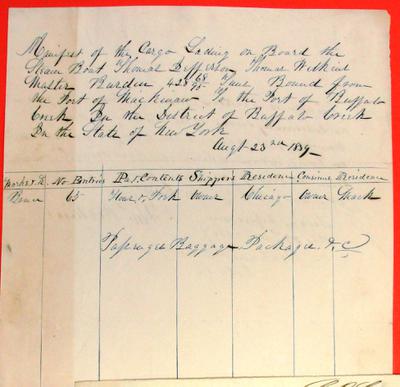 Manifest of the Cargo Lading on Board the
Steam Boat Thomas Jefferson Thomas Wilkins
Master Burden 428 68/95 Tuns Bound from
the Port of Mackinaw To the Port of Buffalo
Creek, In the District of Buffalo Creek
In the State of New York
Augt 23rd 1839
Marks & No Entries Pks & Contents Shippers Residence Consignee Residence
65 Flour & Pork Owner Chicago Owner Mack
Passenger Baggage Packages &C